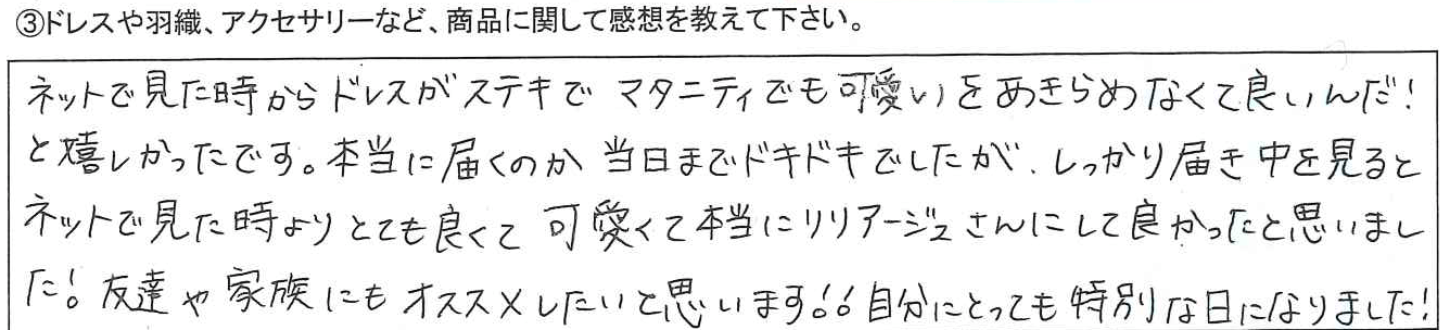 ③ドレスや羽織、アクセサリーなど、商品に関して感想を教えて下さい。
ネットで見た時からドレスがステキで マタニティでも可愛いをあきらめなくて良いんだ!
と嬉しかったです。本当に届くのか 当日までドキドキでしたが、しっかり届き中を見ると
ネットで見た時よりとても良くて 可愛くて本当にリリアージュさんにして良かったと思いまし
た!。友達や家族にもオススメしたいと思います!!自分にとっても特別な日になりました!